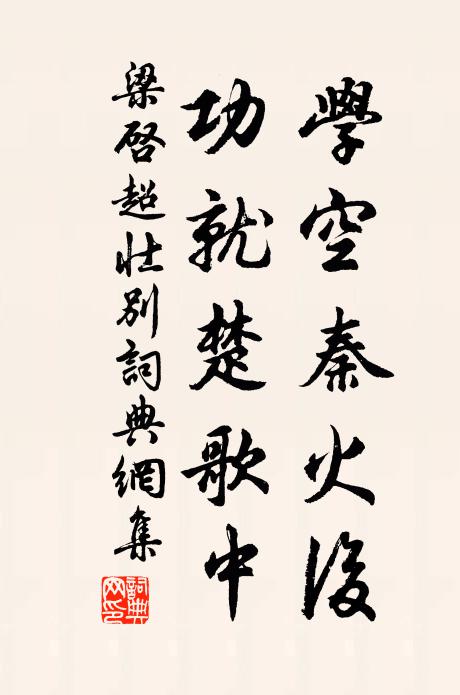 學空秦火後
功就楚歌中
梁啓超壯別詞典網集
詞典網印